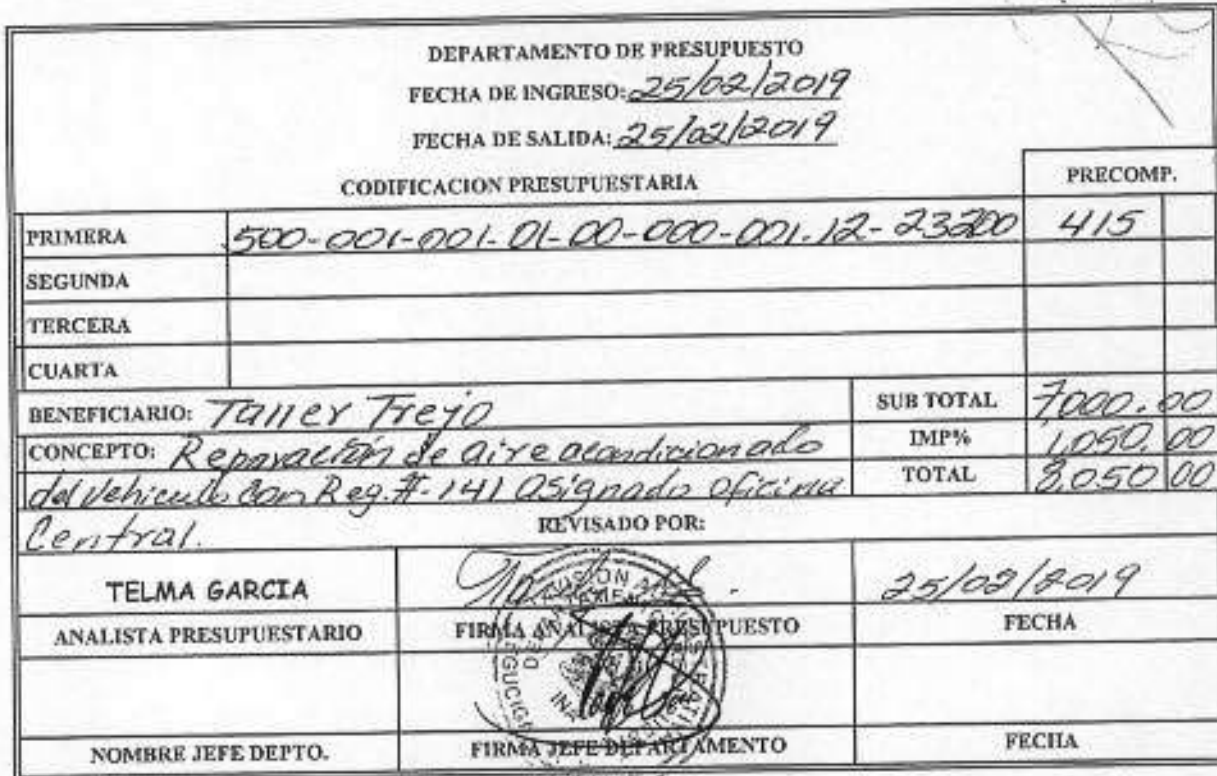 DEPARTAMENTO DE PRESUPUESTO
FECHA DE INGRESO: 25/02/2019
FECHA DE SALIDA: 25/02/2019
CODIFICACION PRESUPUESTARIA PRECOMP.
PRIMERA 500-001-001-01-00-000-001-12-23200 415
SEGUNDA
TERCERA
CUARTA
BENEFICIARIO: Taller Trejo SUB TOTAL 7000.00
CONCEPTO: Reparación de aire acondicionado IMP% 1,050.00
del Vehiculo Con Reg.#-141 Asignado Oficina TOTAL 8,050 00
Central. REVISADO POR:
TELMA GARCIA 25/02/2019
ANALISTA PRESUPUESTARIO FIRMA ANALISTA PRESUPUESTO FECHA
NOMBRE JEFE DEPTO. FIRMA JEFE DEPARTAMENTO FECHA